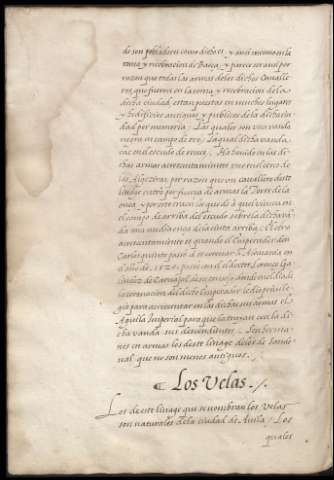 de son pobladores como dicho es, y assi mesmo en la
toma y recobracion de Baeça, y parece ser assi por
razon que todas las armas delos dichos Cavalle
ros, que fueron en la toma y recobracion dela
dicha ciudad, estan puestas en muchos lugares
y Edificios antiguos y publicos dela dicha ciu
dad por memoria. Las quales son una vanda
negra en campo de oro, la qual dicha vanda
nace enel escudo de
chas armas acrescentamientos uno enel cerco de
las Algeziras, por razon que un cavallero deste
linage entro por fuerça de armas la Torre dela
puso en
el campo de arriba del escudo sobre la dicha van
da una media arriba. El otro
acrescentamiento es quando el Emperador don
Carlos quinto passo a se coronar a Alemania en
el año de .1520. passo con el el doctor Lorenço Ga
lindez de Carvajal, de su consejo
la coronacion del dicho Emperador le dio priville
gio para acrescentar en las dichas sus armas el
Aguila Imperial para que la traxan con la di
cha vanda sus decendientes. Son herma
nos en armas los deste linage delos de Sando
val que no son menos antiguos.
Los Velas.
Los de este linage que se nombran los Velas
son naturales dela ciudad de Avila. Los
quales